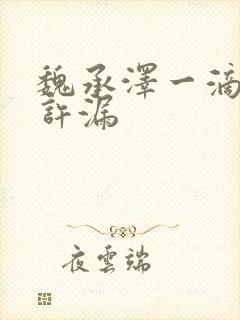 魏承澤一滴
許漏
夜雲端